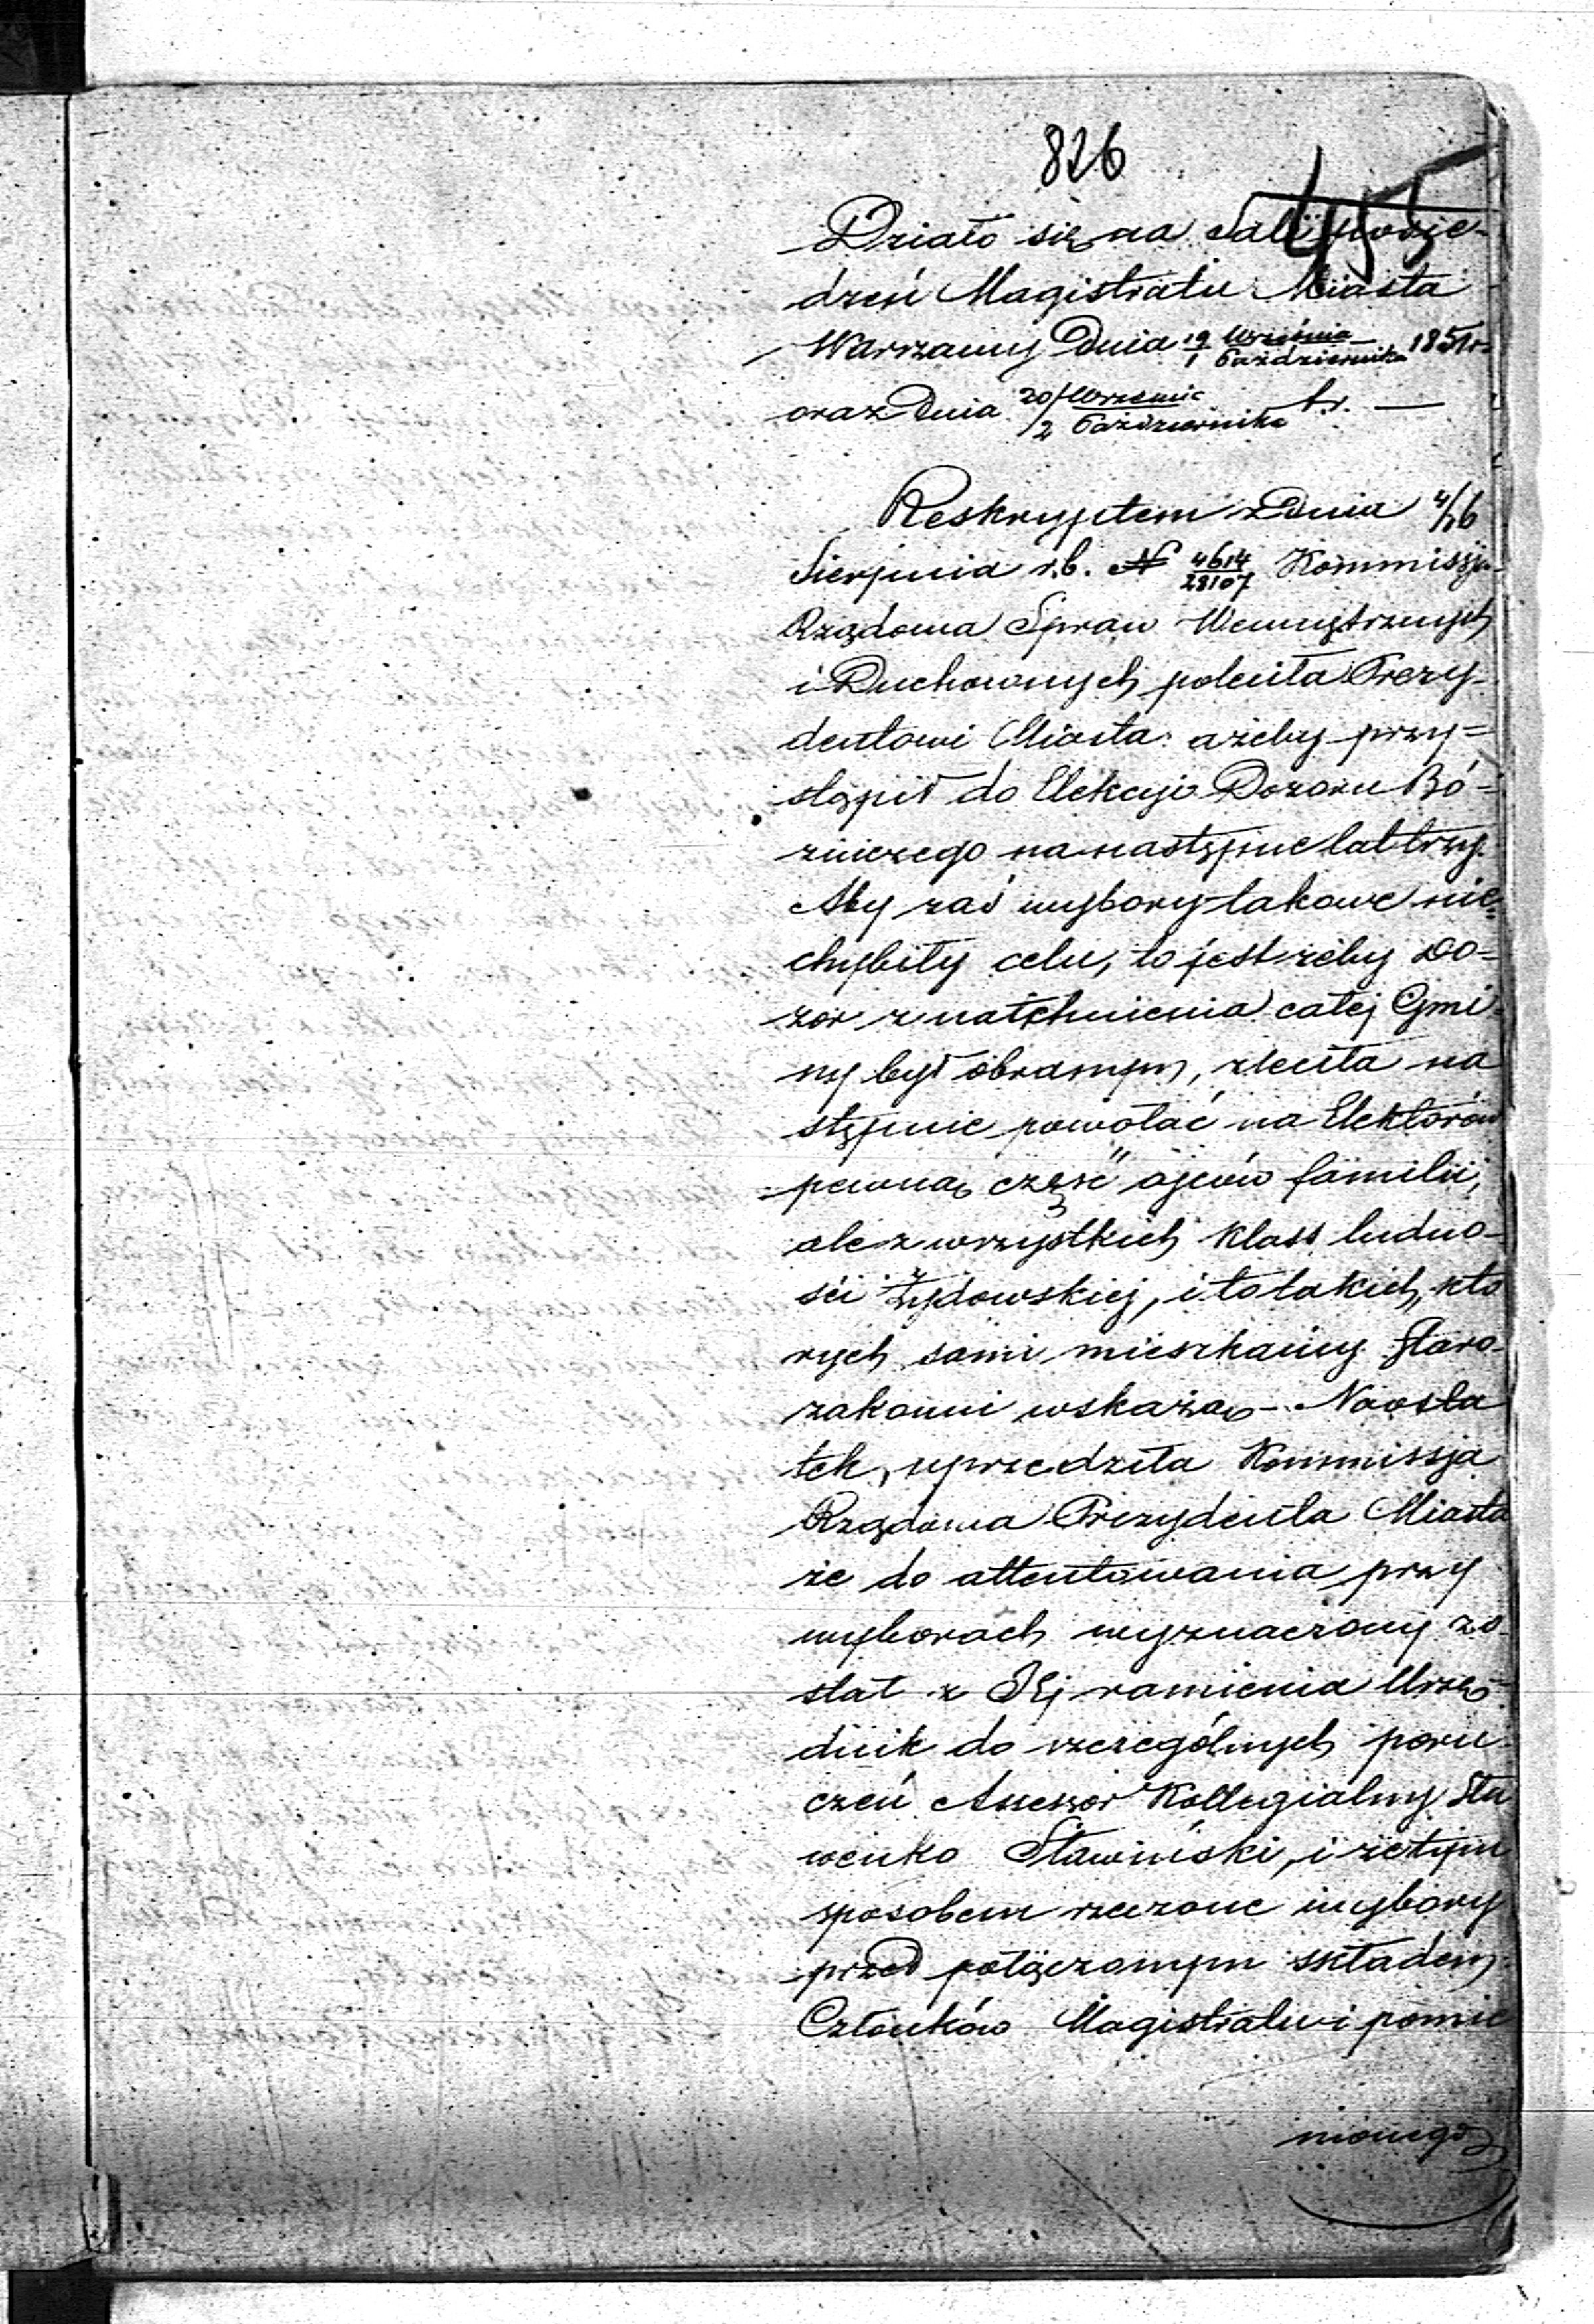 826
455
Działo się na Sali posie-
dzeń Magistratu Miasta
Warszawy Dnia 19 Września / 1 Października 1851 r.
oraz Dnia 20 Września / 2 Października t.r. —
Reskryptem z Dnia 4/16
Sierpnia r.b. N 4614/28107 Kommissja
Rządowa Spraw Wewnętrznych
i Duchownych poleciła Prezy-
dentowi Miasta: ażeby przy=
stąpił do Elekcyi Dozoru Bó-
żniczego na następne lat trzy.
Aby zaś wybory takowe nie
chybiły celu, to jest żeby Do=
zór z natchnienia całej Gmi-
ny był obranym, zleciła na
stępnie powołać na Elektorów
pewną część ojców familii,
ale z wszystkich klass ludno-
ści Żydowskiej, i to takich, któ
rych sami mieszkańcy Staro-
zakonni wskażą - Naosta
tek, uprzedziła Kommissja
Rządowa Prezydenta Miasta
że do attentowania przy
wyborach wyznaczony zo
stał z Jej ramienia Urzę-
dnik do szczególnych poru
czeń Assessor Kollegialny Sta
wenko Sławiński, i że tym
sposobem rzeczone wybory
przed połączonym składem
Członków Magistratu i pomie
nionego